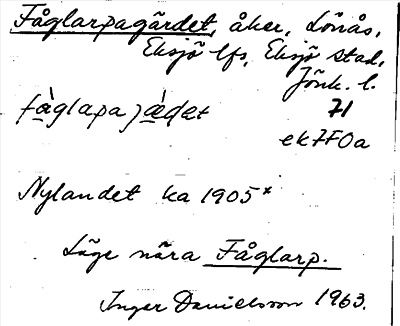 Fåglarpagärdet, åker, Lönås,
Eksjö lfs, Eksjö stad,
Jönk. l.
fåglapajædet 71
ek7F0a
Nylandet ka 1905*
Läge nära Fåglarp.
Inger Danielsson 1963.